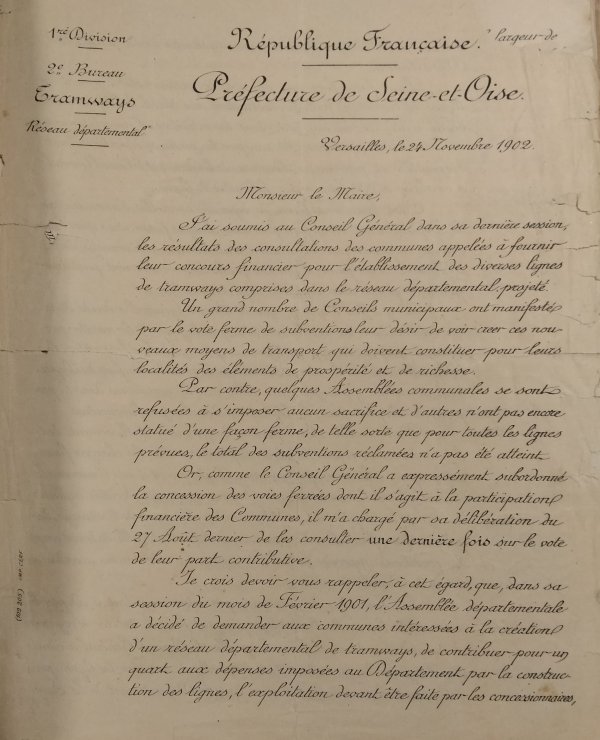 1re Division
2e Bureau
Tramways
Réseau départemental
République Française.
largeur de
Préfecture de Seine-et-Oise.
Versailles, le 24 Novembre 1902.
Monsieur le Maire,
J'ai soumis au Conseil Général dans sa dernière session,
les résultats des consultations des communes appelées à fournir
leur concours financier pour l'établissement des diverses lignes
de tramways comprises dans le réseau départemental projeté.
Un grand nombre de Conseils municipaux ont manifesté
par le vote ferme de subventions leur désir de voir creer ces nou-
veaux moyens de transport qui doivent constituer pour leurs
localités des éléments de prospérité et de richesse.
Par contre, quelques Assemblées communales se sont
refusées à s'imposer aucun sacrifice et d'autres n'ont pas encore
statué d'une façon ferme, de telle sorte que pour toutes les lignes
prévues, le total des subventions réclamées n'a pas été atteint.
Or, comme le Conseil Général a expressément subordonné
la concession des voies ferrées dont il s'agit à la participation
financière des Communes, il m'a chargé par sa délibération du
27 Août dernier de les consulter une dernière fois sur le vote
de leur part contributive.
Je crois devoir vous rappeler, à cet égard, que, dans sa
session du mois de Février 1901, l'Assemblée départementale
a décidé de demander aux communes intéressées à la création
d'un réseau départemental de tramways, de contribuer pour un
quart aux dépenses imposées au Département par la construc-
tion des lignes, l'exploitation devant être faite par les concessionnaires,